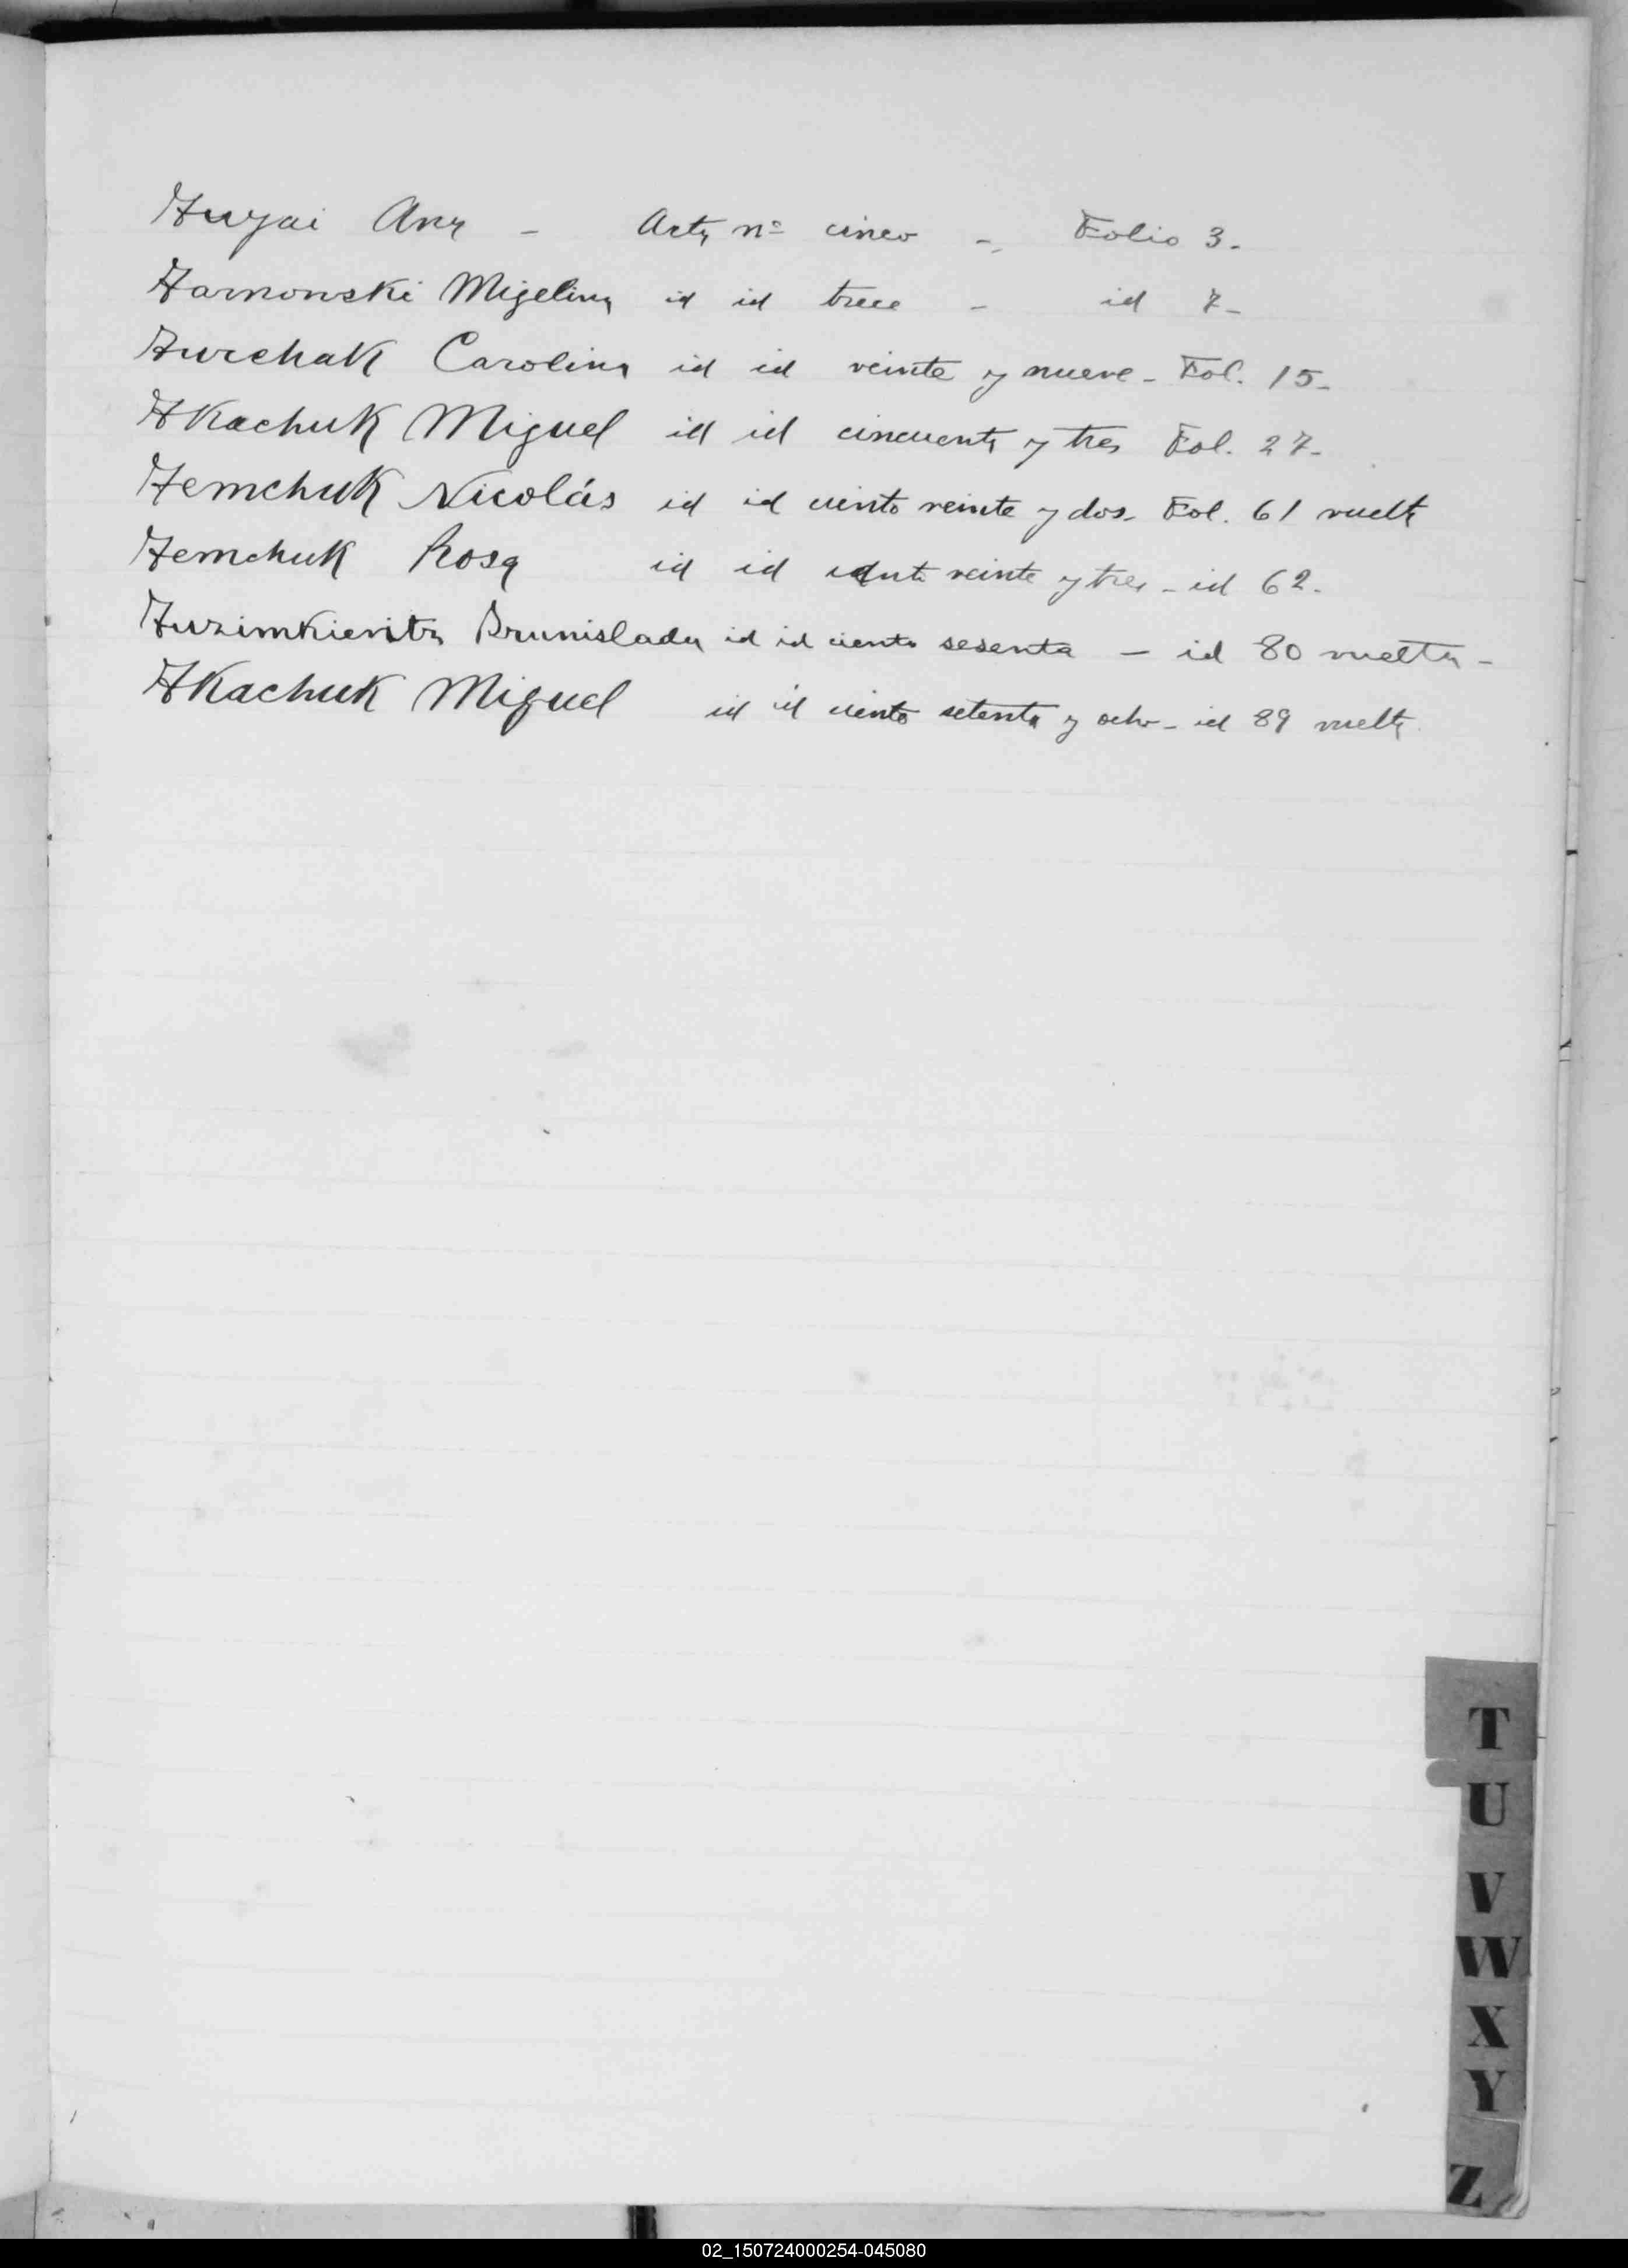 Tuyai Ana - Acta nº cinco - Folio 3.
Tarnonski Migelina id id trece - id 7-
Turchak Carolina id id veinte y nueve - Fol. 15-
Tkachuk Miguel id id cincuenta y tres Fol. 27-
Temchuk Nicolás id id ciento veinte y dos - Fol. 61 vuelta
Temchuk Rosa id id ciento veinte y tres - id 62.
Turimkievitz Brunislada id id ciento sesenta - id 80 vuelta -
Tkachuk Miguel id id ciento setenta y ocho - id 89 vuelta
T
U
V
W
X
Y
Z
02_150724000254-045080